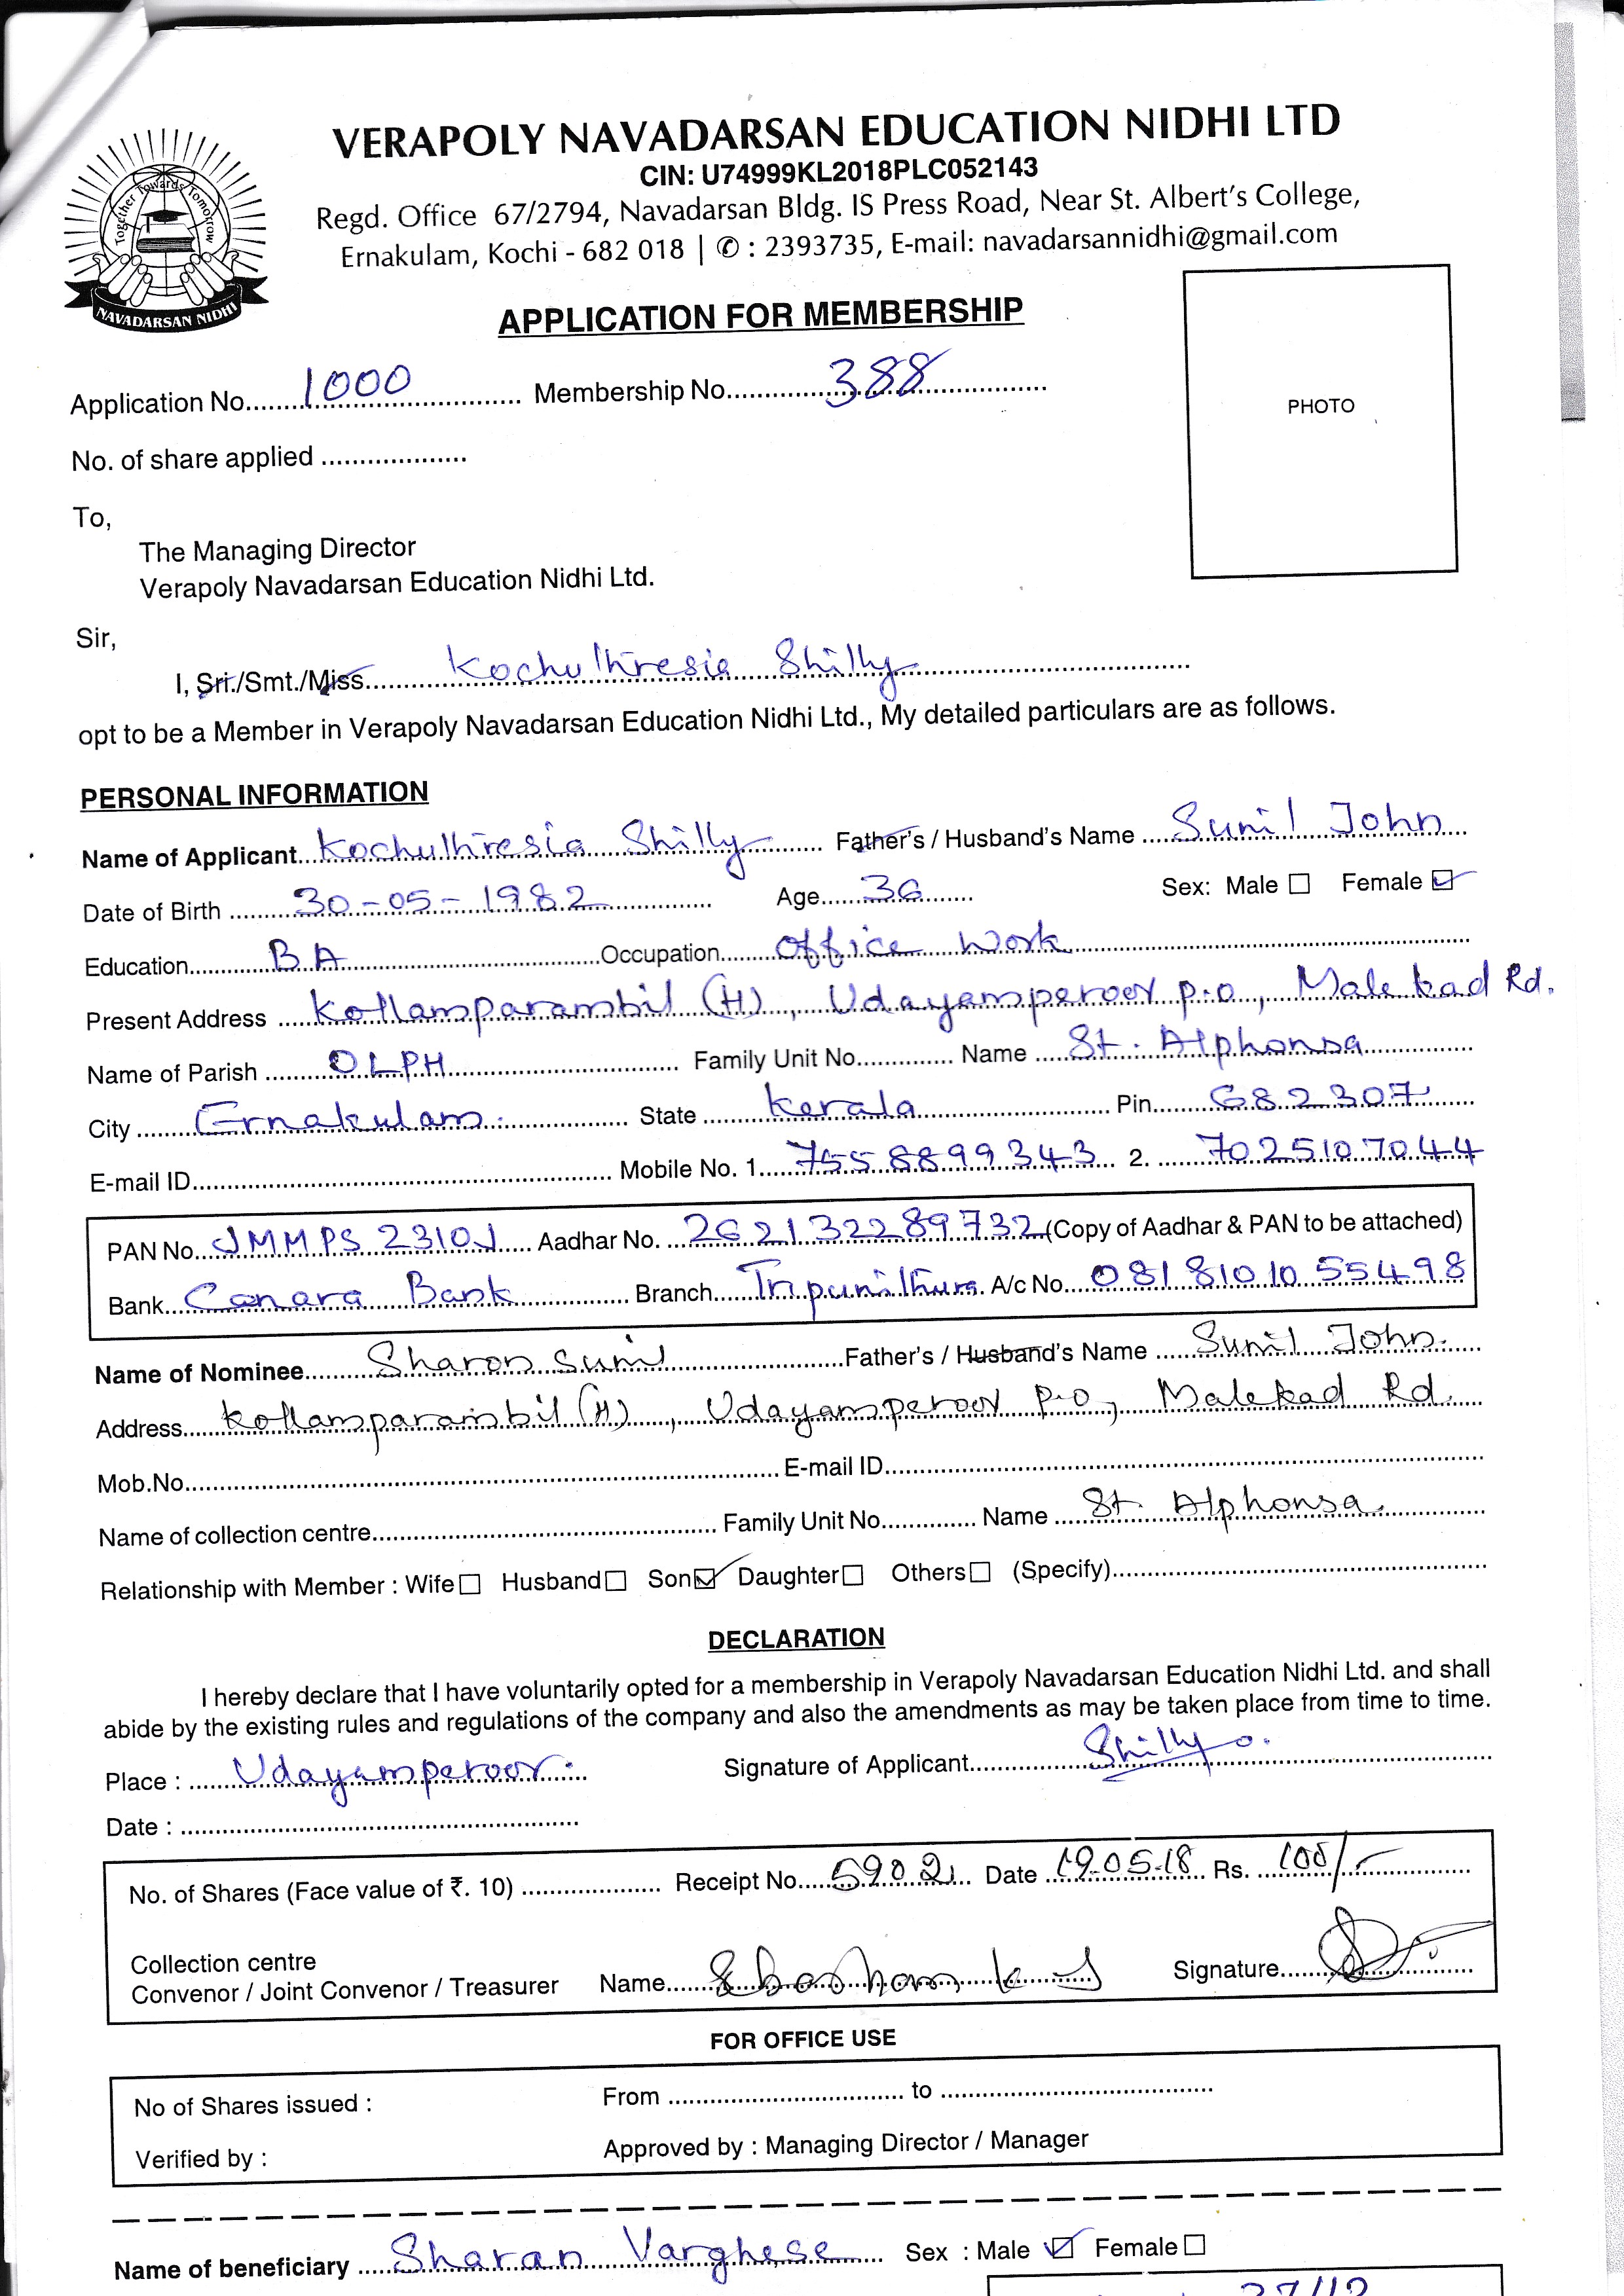 Together Towards Tomorrow
NAVADARSAN NIDHI
VERAPOLY NAVADARSAN EDUCATION NIDHI LTD
CIN: U74999KL2018PLC052143
Regd. Office 67/2794, Navadarsan Bldg. IS Press Road, Near St. Albert's College,
Ernakulam, Kochi - 682 018 | ✆ : 2393735, E-mail: navadarsannidhi@gmail.com
APPLICATION FOR MEMBERSHIP
PHOTO
Application No. 1000 Membership No. 388
No. of share applied
To,
The Managing Director
Verapoly Navadarsan Education Nidhi Ltd.
Sir,
I, Sri./Smt./Miss Kochuthresia Shilly
opt to be a Member in Verapoly Navadarsan Education Nidhi Ltd., My detailed particulars are as follows.
PERSONAL INFORMATION
Name of Applicant Kochuthresia Shilly Father's / Husband's Name Sunil John
Date of Birth 30-05-1982 Age 36 Sex: Male ☐ Female ☑
Education BA Occupation Office Work
Present Address Kollamparambil (H), Udayamperoor p.o, Malekad Rd.
Name of Parish OLPH Family Unit No. Name St. Alphonsa
City Ernakulam. State Kerala Pin 682307
E-mail ID Mobile No. 1. 7558899343 2. 7025107044
PAN No. JMMPS 2310J Aadhar No. 262132289732 (Copy of Aadhar & PAN to be attached)
Bank Canara Bank Branch Tripunithura A/c No. 0818101055498
Name of Nominee Sharon Sunil Father's / Husband's Name Sunil John.
Address Kollamparambil (H), Udayamperoor p.o, Malekad Rd.
Mob.No. E-mail ID
Name of collection centre Family Unit No. Name St. Alphonsa.
Relationship with Member : Wife ☐ Husband ☐ Son ☑ Daughter ☐ Others ☐ (Specify)
DECLARATION
I hereby declare that I have voluntarily opted for a membership in Verapoly Navadarsan Education Nidhi Ltd. and shall
abide by the existing rules and regulations of the company and also the amendments as may be taken place from time to time.
Place : Udayamperoor. Signature of Applicant Shilly
Date :
No. of Shares (Face value of ₹. 10) Receipt No. 5902 Date 19.05.18 Rs. 100/-
Collection centre
Convenor / Joint Convenor / Treasurer Name Signature
FOR OFFICE USE
No of Shares issued : From to
Verified by : Approved by : Managing Director / Manager
Name of beneficiary Sharan Varghese Sex : Male ☑ Female ☐